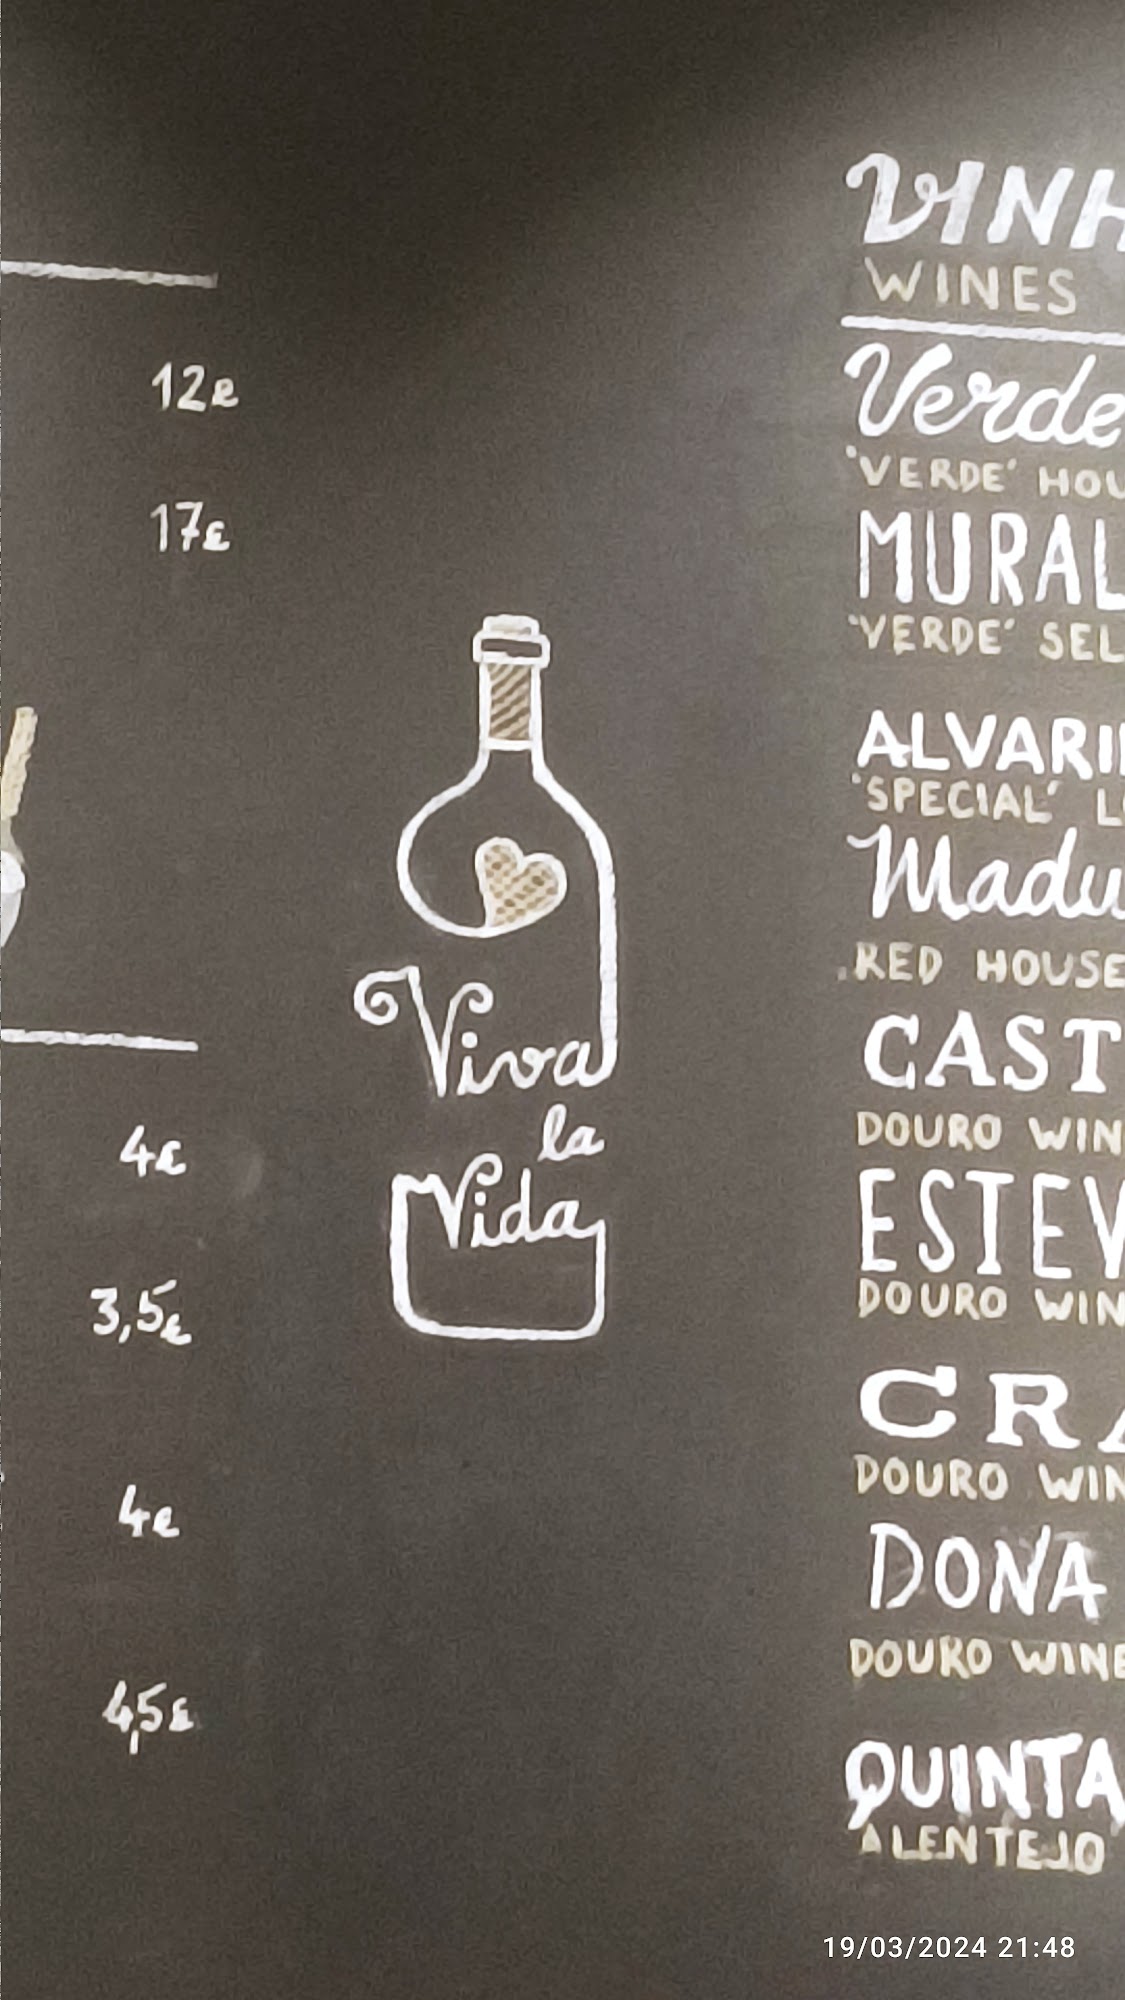 12€
17€
4€
3,5€
4€
4,5€
Viva
la
Vida
VINH
WINES
Verde
'VERDE' HOU
MURAL
'VERDE' SEL
ALVARI
'SPECIAL' L
Madu
RED HOUSE
CAST
DOURO WIN
ESTEV
DOURO WIN
CRA
DOURO WIN
DONA
DOURO WINE
QUINTA
ALENTEJO
19/03/2024 21:48